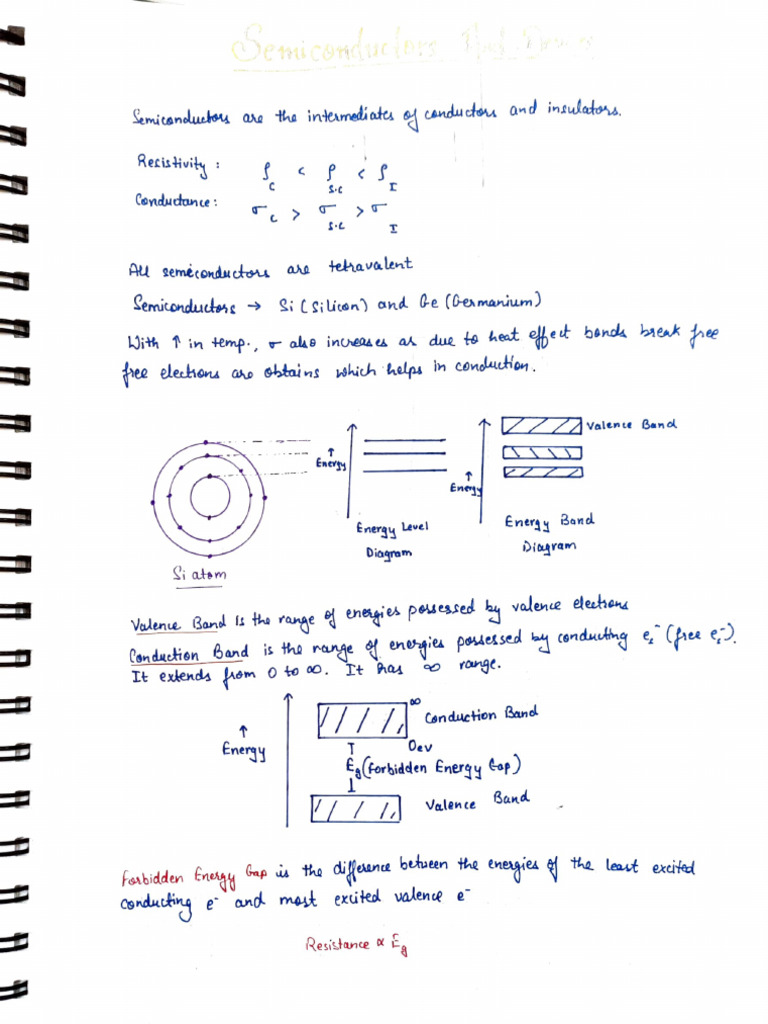 Semiconductors
Semiconductors are the intermediates of conductors and insulators.
Resistivity : ρ_C < ρ_S.C < ρ_I
Conductance : σ_C > σ_S.C > σ_I
All semiconductors are tetravalent
Semiconductors → Si (Silicon) and Ge (Germanium)
With ↑ in temp., σ also increases as due to heat effect bonds break free
free electrons are obtains which helps in conduction.
Valence Band
↑
Energy
↑
Energy
Energy Level
Diagram
Energy Band
Diagram
Si atom
Valence Band is the range of energies possessed by valence electrons
Conduction Band is the range of energies possessed by conducting e_s⁻ (free e_s⁻).
It extends from 0 to ∞. It has ∞ range.
∞
Conduction Band
↑
Energy
0ev
Eg (Forbidden Energy Gap)
Valence Band
Forbidden Energy Gap is the difference between the energies of the least excited
conducting e⁻ and most excited valence e⁻
Resistance ∝ Eg